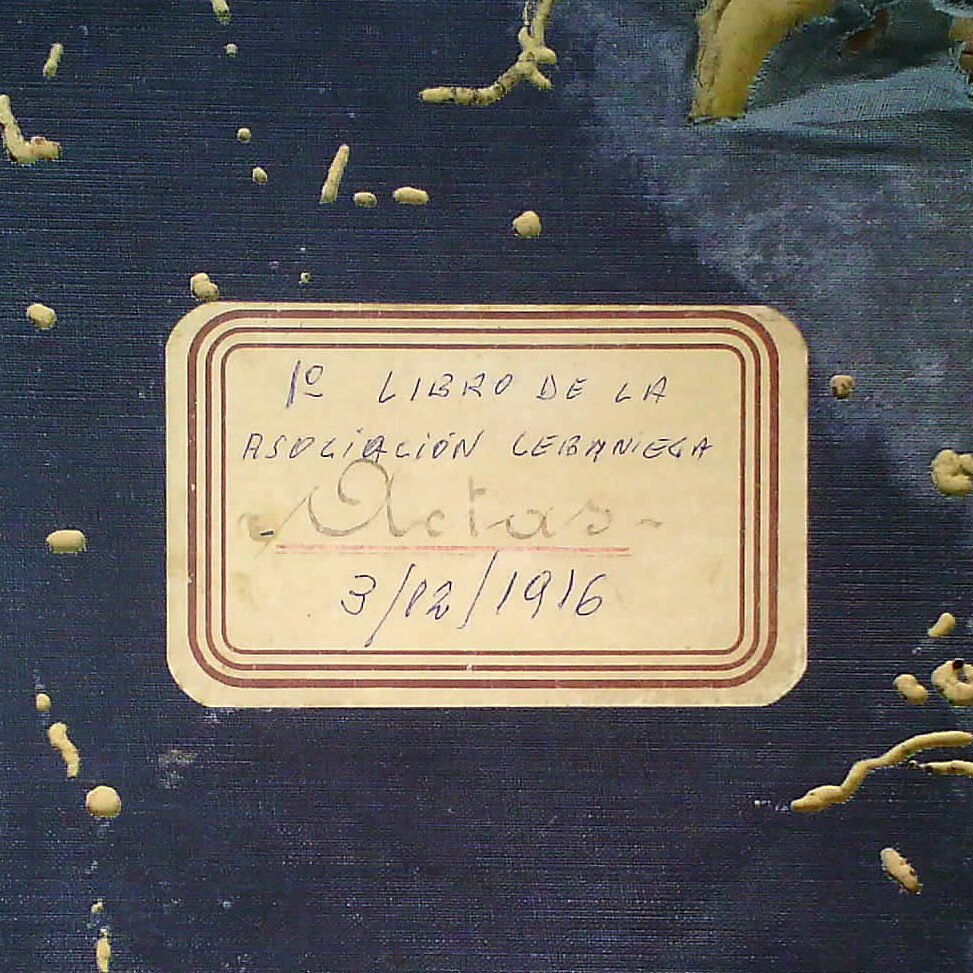 1º LIBRO DE LA
ASOCIACIÓN LEBANIEGA
- Actas -
3/12/1916